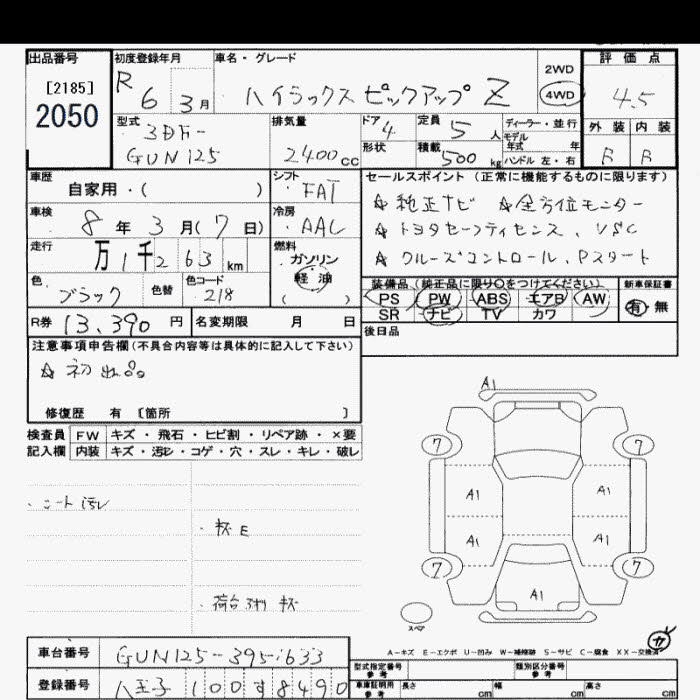 出品番号
[2185]
2050
初度登録年月
R 6 3月
車名・グレード
ハイラックス ピックアップ Z
2WD
4WD
評価点
4.5
外装 内装
B B
型式
3DF-
GUN125
排気量
2400cc
ドア 4
形状
定員 5 人
積載 500 kg
ディーラー・並行
モデル
年式 年
ハンドル 左・右
車歴
自家用・( )
シフト
FAT
車検
8年3月(7日)
冷房
AAC
走行
万1千263km
燃料
ガソリン
軽油
( )
色
ブラック
色替
色コード
218
R券 13,390円
名変期限 月 日
セールスポイント(正常に機能するものに限ります)
☆純正ナビ ☆全方位モニター
☆トヨタセーフティセンス、VSC
☆クルーズコントロール、Pスタート
装備品(純正品に限り○をつけてください)
PS PW ABS エアB AW
SR ナビ TV カワ
新車保証書
有 無
後日品
注意事項申告欄(不具合内容等は具体的に記入して下さい)
☆初出品
修復歴 有 〔箇所 〕
検査員
記入欄
FW キズ・飛石・ヒビ割・リペア跡・×要
内装 キズ・汚レ・コゲ・穴・スレ・キレ・破レ
・シート汚レ
・キズE
・荷台 キズ
A1
7 7
A1 A1
A1 A1
7 7
A1
スペア
A-キズ E-エクボ U-凹み W-補修跡 S-サビ C-腐食 XX-交換済
車台番号 GUN125-3951633
登録番号 八王子 100す8490
型式指定番号
参考
類別区分番号
参考
車庫証明用
参考
長さ cm 幅 cm 高さ cm